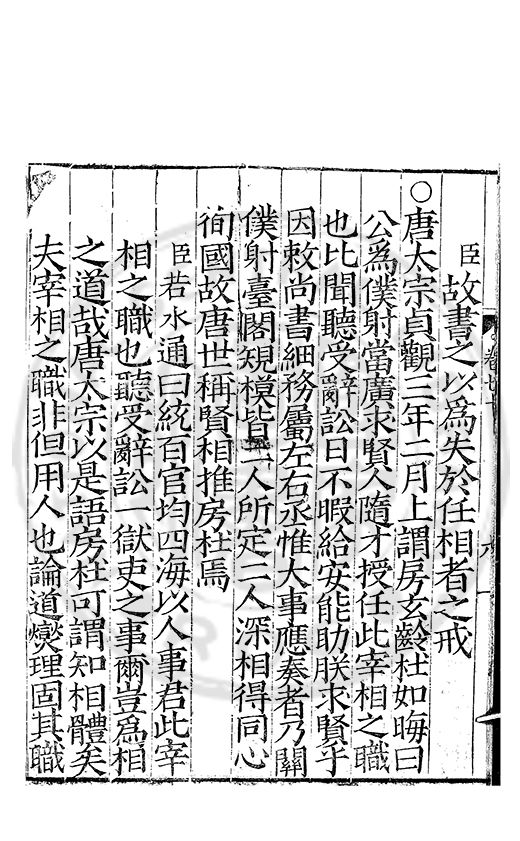 臣故書之以為失於任相者之戒
○唐太宗貞觀三年二月上謂房玄齡杜如晦曰
公為僕射當廣求賢人隨才授任此宰相之職
也比聞聽受辭訟日不暇給安能助朕求賢乎
因敕尚書細務屬左右丞惟大事應奏者乃關
僕射臺閣規模皆二人所定二人深相得同心
徇國故唐世稱賢相推房杜焉
臣若水通曰統百官均四海以人事君此宰
相之職也聽受辭訟一獄吏之事爾豈為相
之道哉唐太宗以是語房杜可謂知相體矣
夫宰相之職非但用人也論道爕理固其職